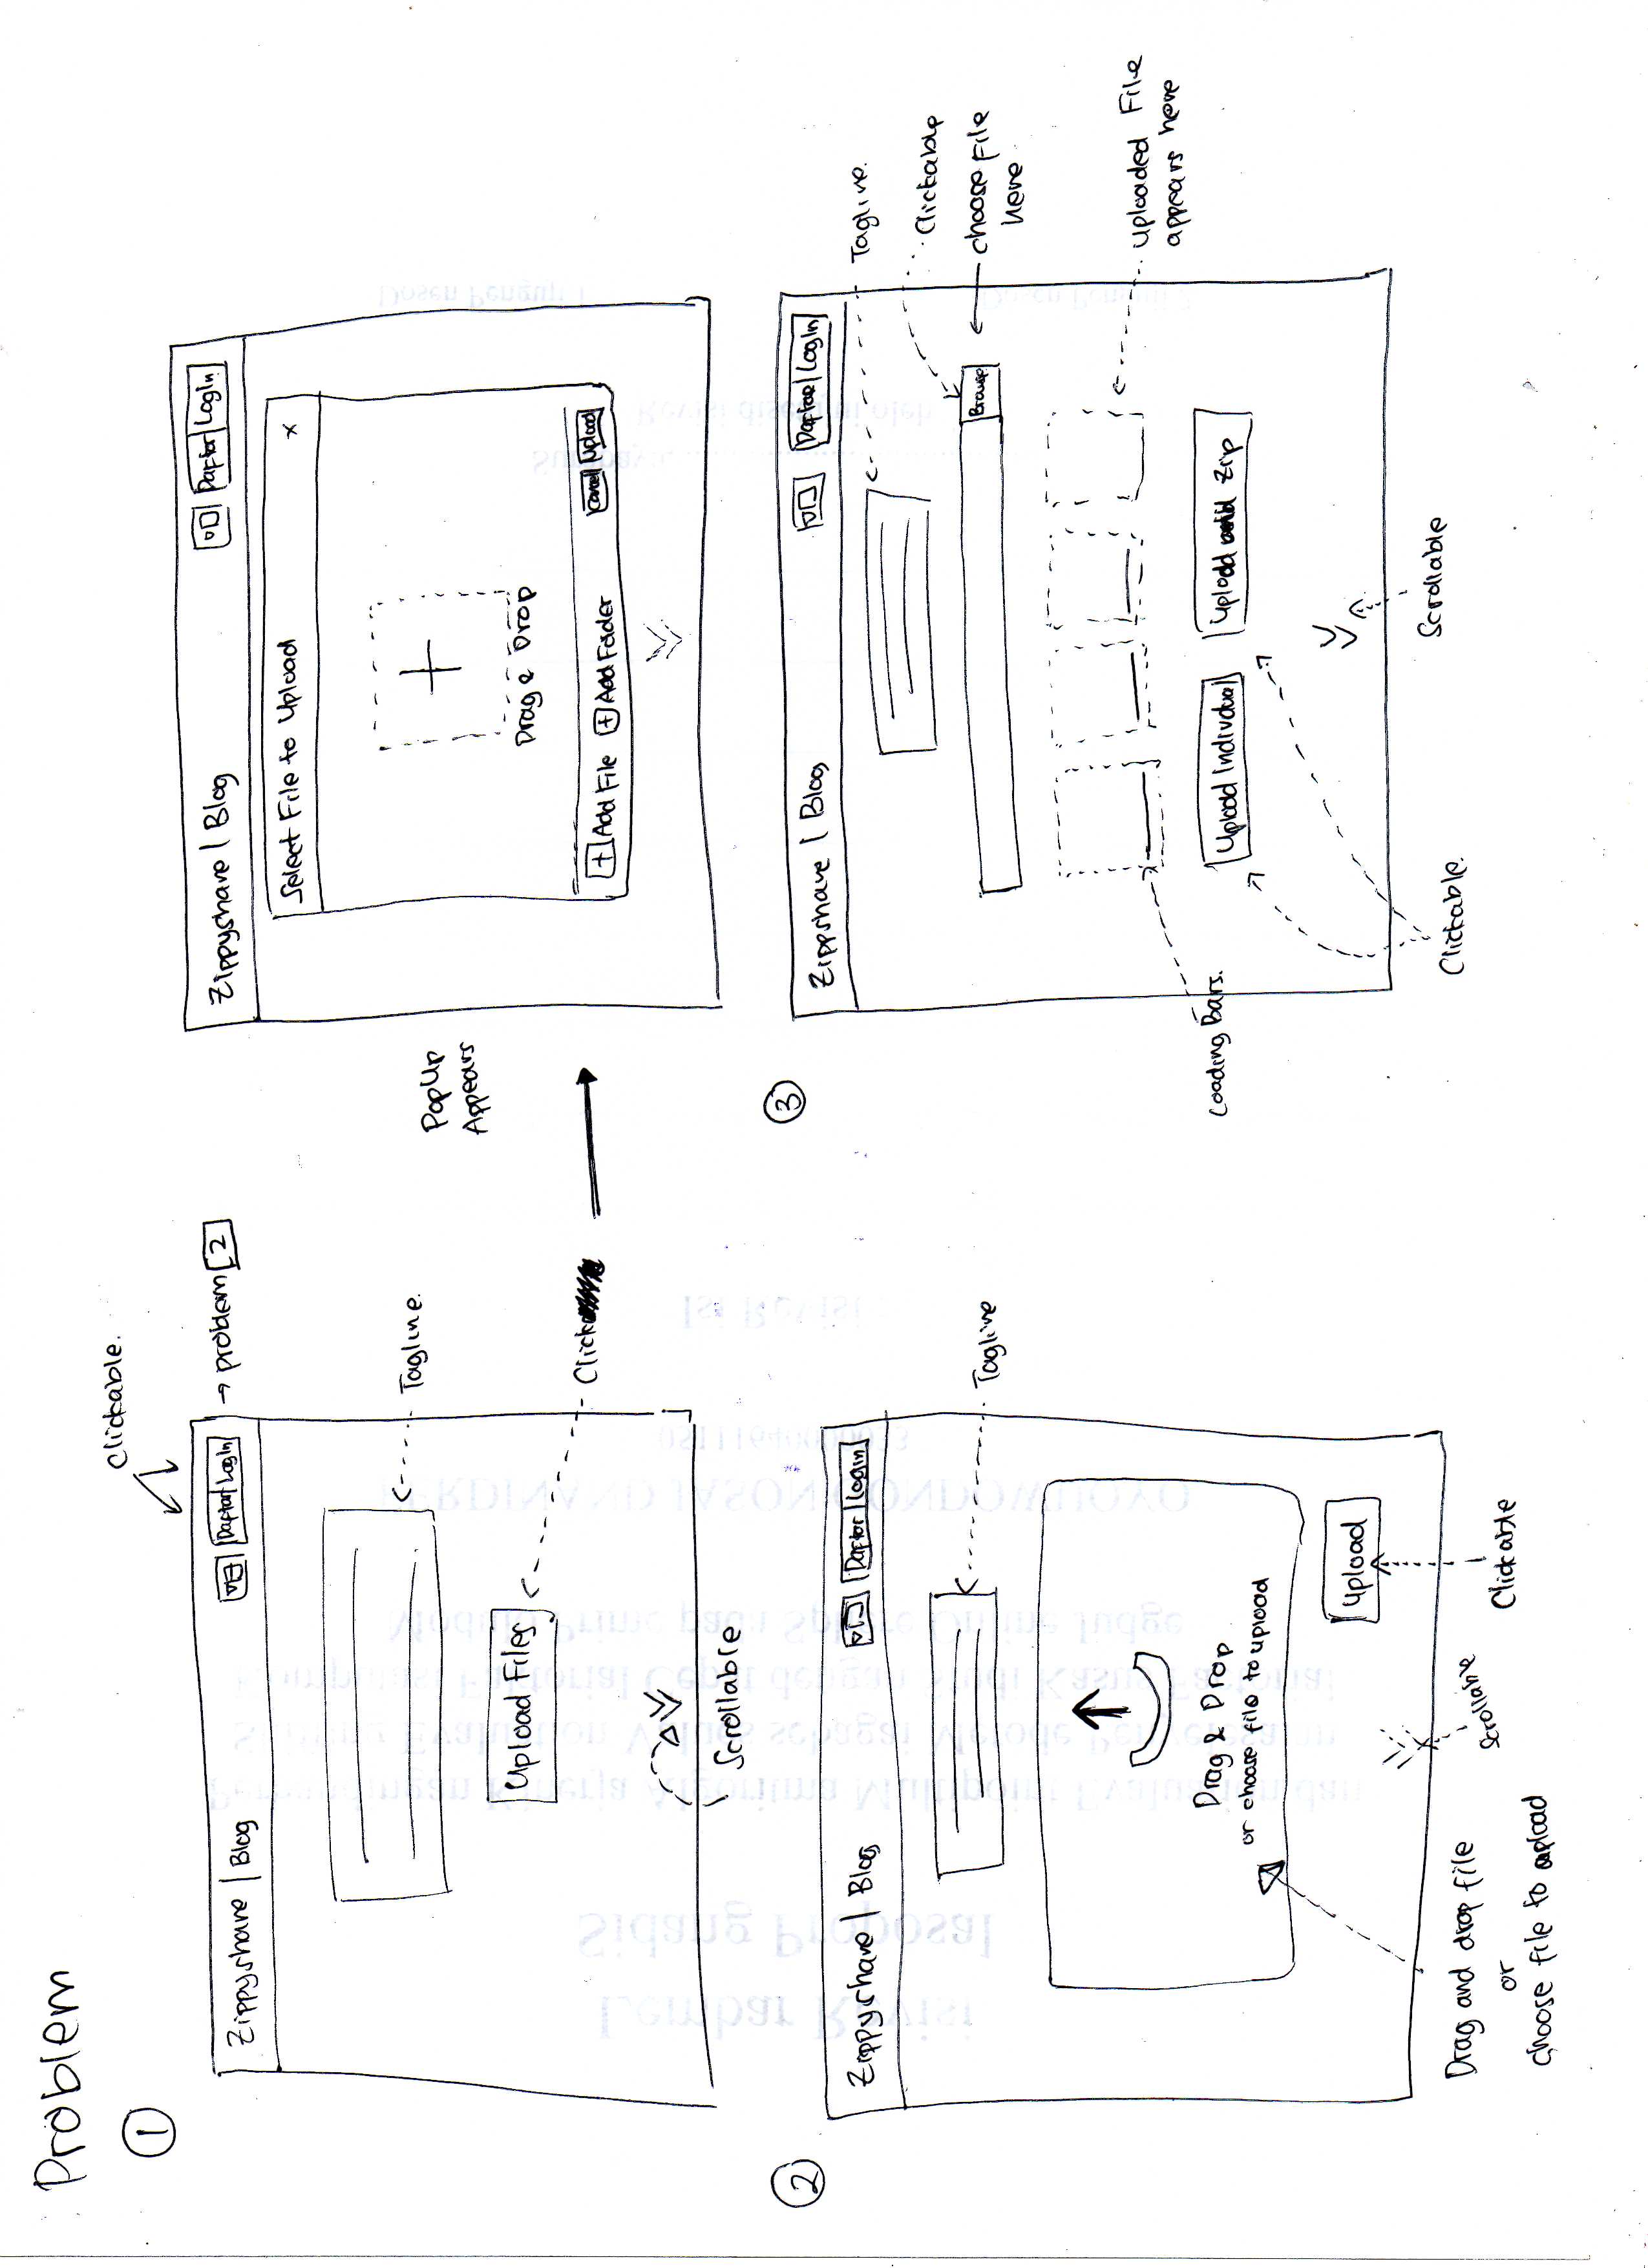 Problem
1
Clickable.
Zippyshare | Blog
Daftar | Login
→ problem 2
Tagline.
Upload Files
Click
Scrollable
PopUp
Appears
Zippyshare | Blog
Daftar | Login
Select File to Upload x
Drag & Drop
+ Add File + Add Folder Cancel Upload
2
Zippyshare | Blog
Daftar | Login
Tagline
Drag & Drop
or choose file to upload
Upload
Drag and drop file
or
choose file to upload
Scrollable
Clickable
3
Zippshare | Blog
Daftar | Login
Tagline.
Clickable
Browse
choose File
here
uploaded File
appears here
Loading Bars.
Upload Individual
Upload Zip
Clickable.
Scrollable